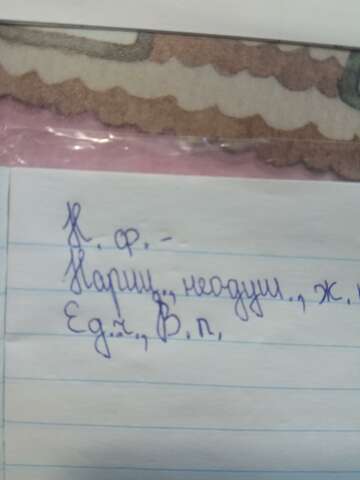 Н. ф. -
Нариц., неодуш., ж.
Ед.ч., В.п.